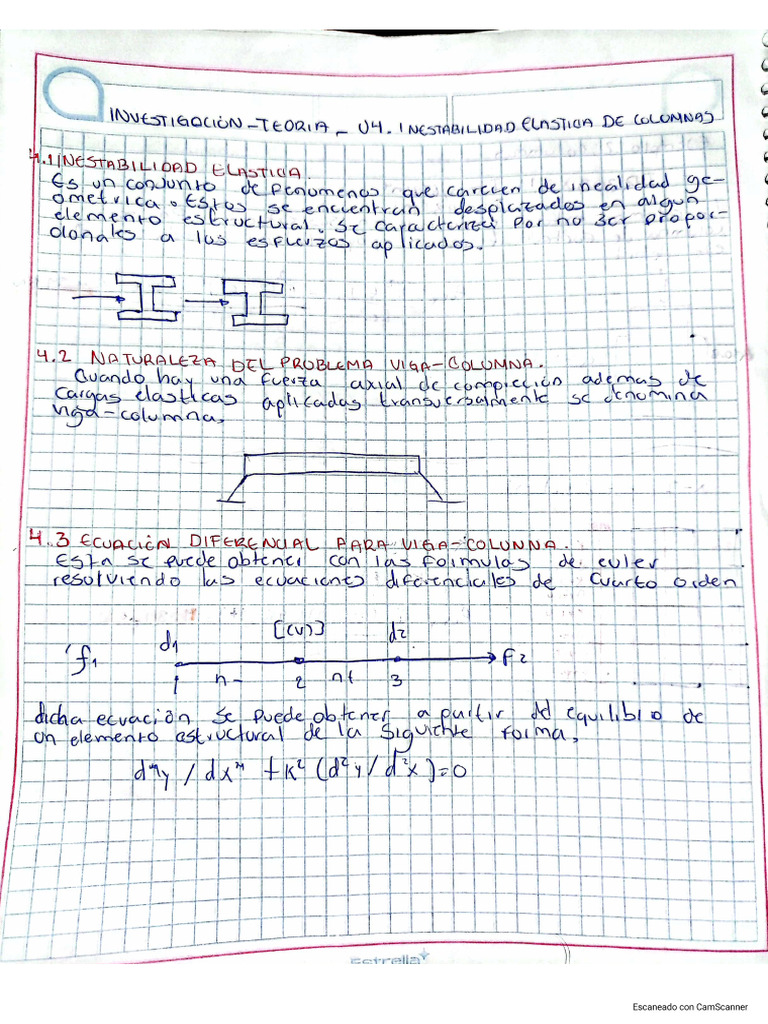 INVESTIGACIÓN-TEORIA-U4. INESTABILIDAD ELASTICA DE COLUMNAS
4.1 INESTABILIDAD ELASTICA.
Es un conjunto de fenomenos que carecen de linealidad ge-
ometrica. Estos se encuentran desplazados en algun
elemento estructural. Se caracteriza por no ser propor-
cionales a los esfuerzos aplicados.
4.2 NATURALEZA DEL PROBLEMA VIGA-COLUMNA.
Cuando hay una fuerza axial de compreción ademas de
cargas elasticas aplicadas transversalmente se denomina
viga-columna.
4.3 ECUACIÓN DIFERENCIAL PARA VIGA-COLUNNA.
Esta se puede obtener con las formulas de euler
resolviendo las ecuaciones diferenciales de cuarto orden
d1 [(v)] d2
f1 f2
1 n- 2 n+ 3
dicha ecuación se puede obtener a partir del equilibrio de
un elemento estructural de la siguiente forma,
d⁴y / dx⁴ + K² (d²y / d²x) = 0
Estrella
Escaneado con CamScanner